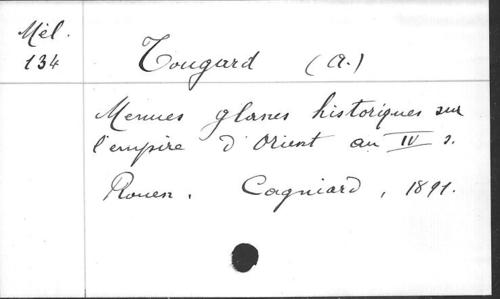 Mél.
134
Tougard (A.)
Menues glanes historiques sur
l'empire d'Orient au IV s.
Rouen. Cagniard, 1891.